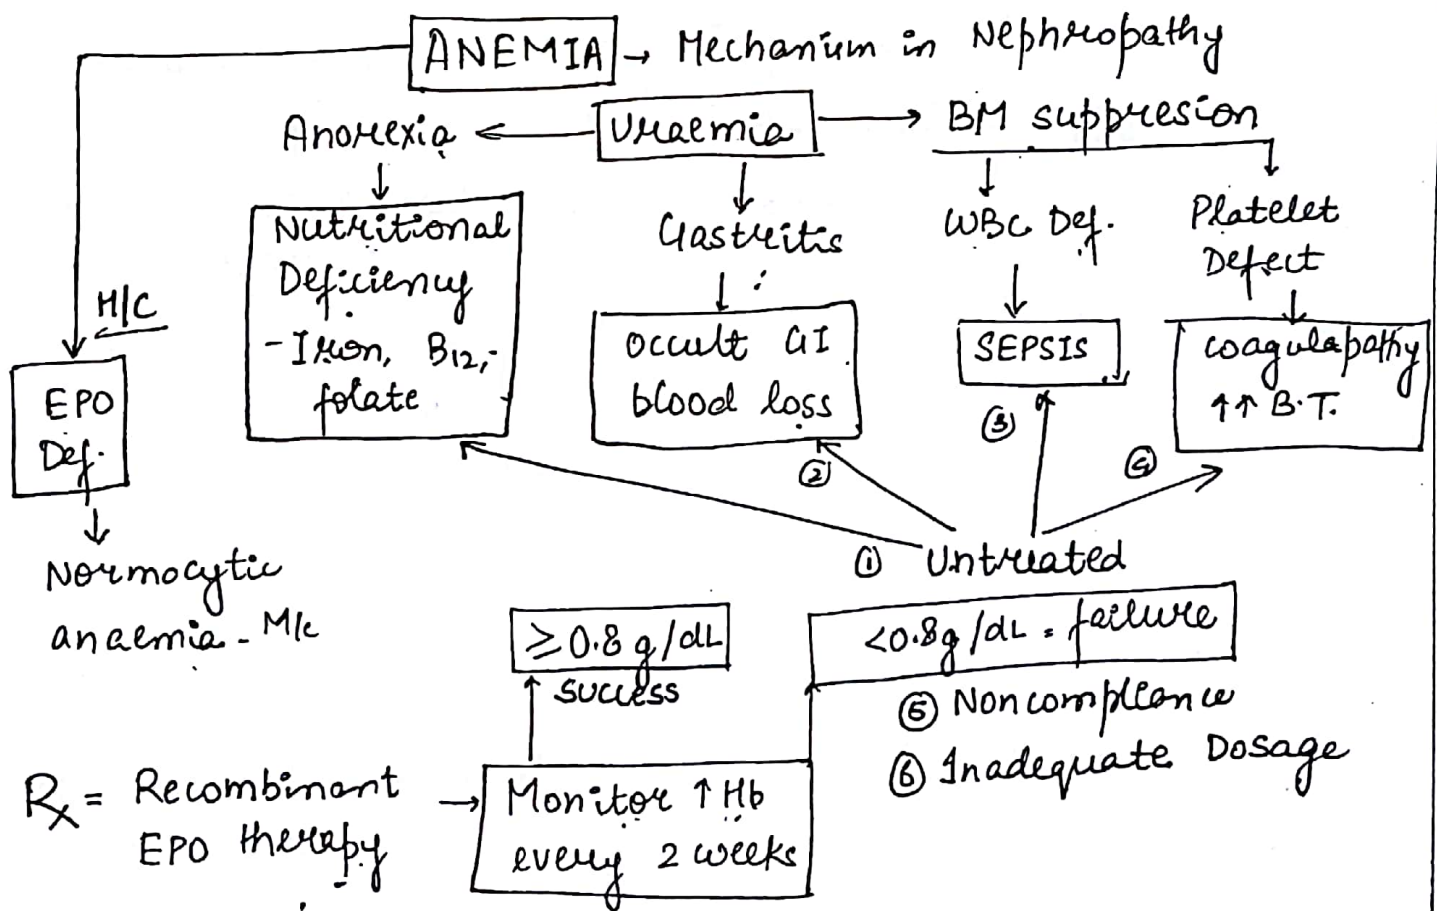 ANEMIA → Mechanism in Nephropathy
Anorexia ← Uraemia → BM suppresion
Nutritional
Deficiency
- Iron, B12,-
folate
Gastritis
occult GI
blood loss
WBC Def.
SEPSIS
Platelet
Defect
coagulapathy
↑↑ B.T.
M/C
EPO
Def.
Normocytic
anaemia - M/c
① Untreated
②
③
④
≥0.8 g/dL
success
<0.8g/dL = failure
⑤ Noncompliance
⑥ Inadequate Dosage
Rx = Recombinant
EPO therapy
→ Monitor ↑ Hb
every 2 weeks